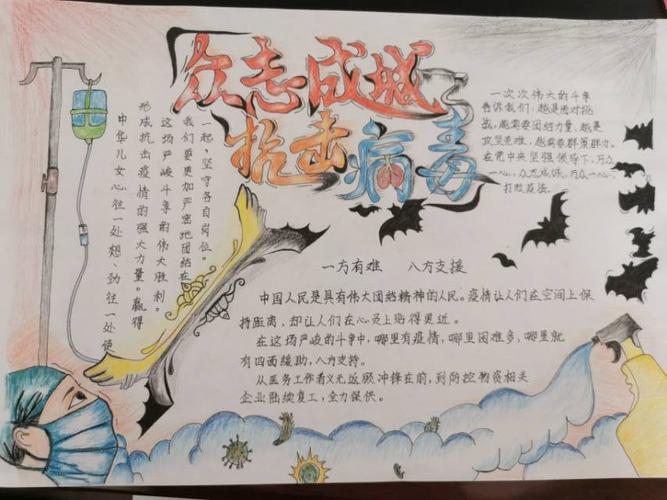 众志成城
抗击病毒
中华儿女心往一处想、劲往一处使
形成抗击疫情的强大力量。赢得
这场严峻斗争的伟大胜利。
我们要更加严密地团结在
一起,坚守各自岗位。
一次次伟大的斗争
告诉我们,越是面对挑
战,越需要团结力量,越是
攻坚克难,越需要群策群力。
在党中央坚强领导下,万众
一心,众志成城,万众一心,
打败疫情。
一方有难 八方支援
中国人民是具有伟大团结精神的人民。疫情让人们在空间上保
持距离,却让人们在心灵上贴得更近。
在这场严峻的斗争中,哪里有疫情,哪里困难多,哪里就
有四面援助,八方支持。
从医务工作者义无反顾冲锋在前,到防控物资相关
企业陆续复工,全力保供。